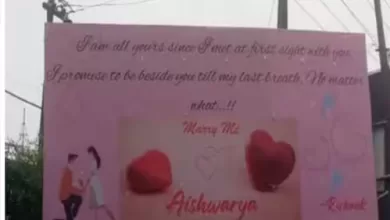 I am all yours since I met at first sight with you.
I promise to be beside you till my last breath. No matter
what...!!
Marry Me
Aishwarya